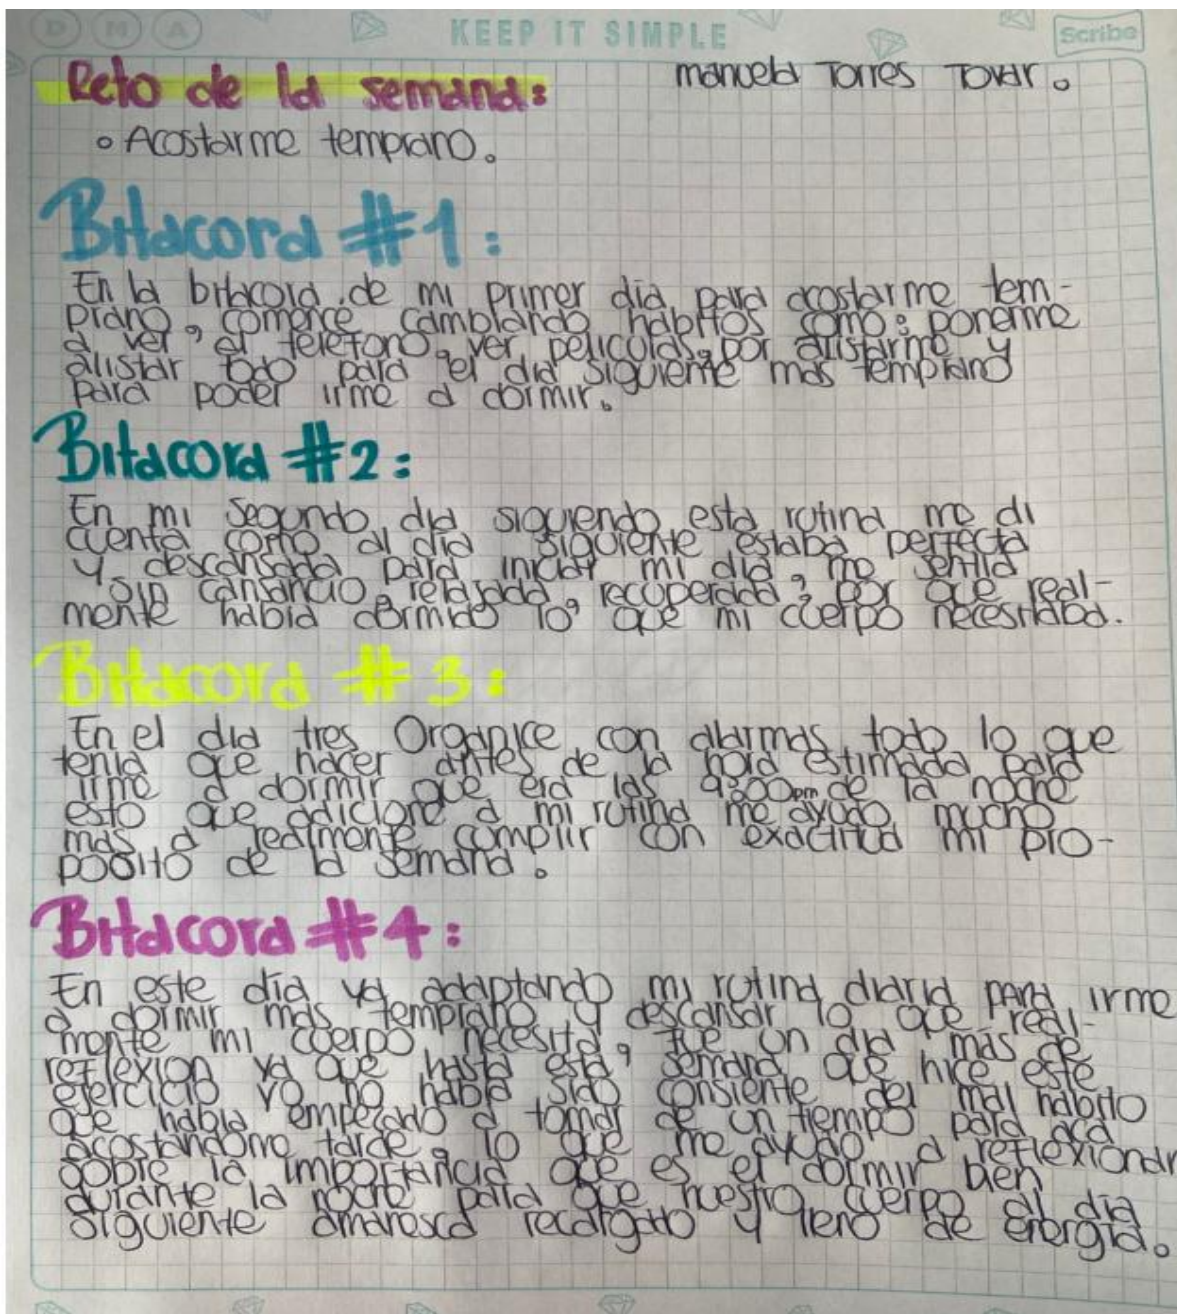 D M A KEEP IT SIMPLE Scribe
Reto de la semana: manuela Torres Tovar.
• Acostarme temprano.
Bitacora #1:
En la bitacora de mi primer día para acostarme tem-
prano, comence cambiando habitos como: ponerme
a ver el telefono, ver peliculas, por alistarme y
alistar todo para el dia siguiente mas temprano
para poder irme a dormir.
Bitacora #2:
En mi segundo dia siguiendo esta rutina me di
cuenta como al dia siguiente estaba perfecta
y descansada para iniciar mi dia, me sentia
sin cansancio, relajada, recuperada, por que real-
mente habia dormido lo que mi cuerpo necesitaba.
Bitacora #3:
En el dia tres Organice con alarmas todo lo que
tenia que hacer antes de la hora estimada para
irme a dormir que era las 9:00pm de la noche
esto que adicione a mi rutina me ayudo mucho
mas a realmente cumplir con exactitud mi pro-
posito de la semana.
Bitacora #4:
En este día ya adaptando mi rutina diaria para irme
a dormir mas temprano y descansar lo que real-
mente mi cuerpo necesita, fue un dia mas de
reflexion ya que hasta esta semana que hice este
ejercicio yo no habia sido consiente del mal habito
que habia empezado a tomar de un tiempo para acá
acostandome tarde, lo que me ayudo a reflexionar
sobre la importancia que es el dormir bien
durante la noche para que nuestro cuerpo al dia
siguiente amanesca recargado y lleno de energía.